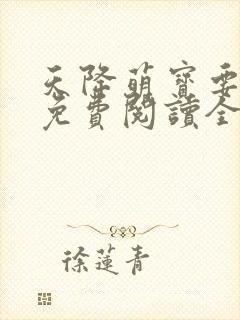 天降萌寶要
免費閱讀全
徐蓮青